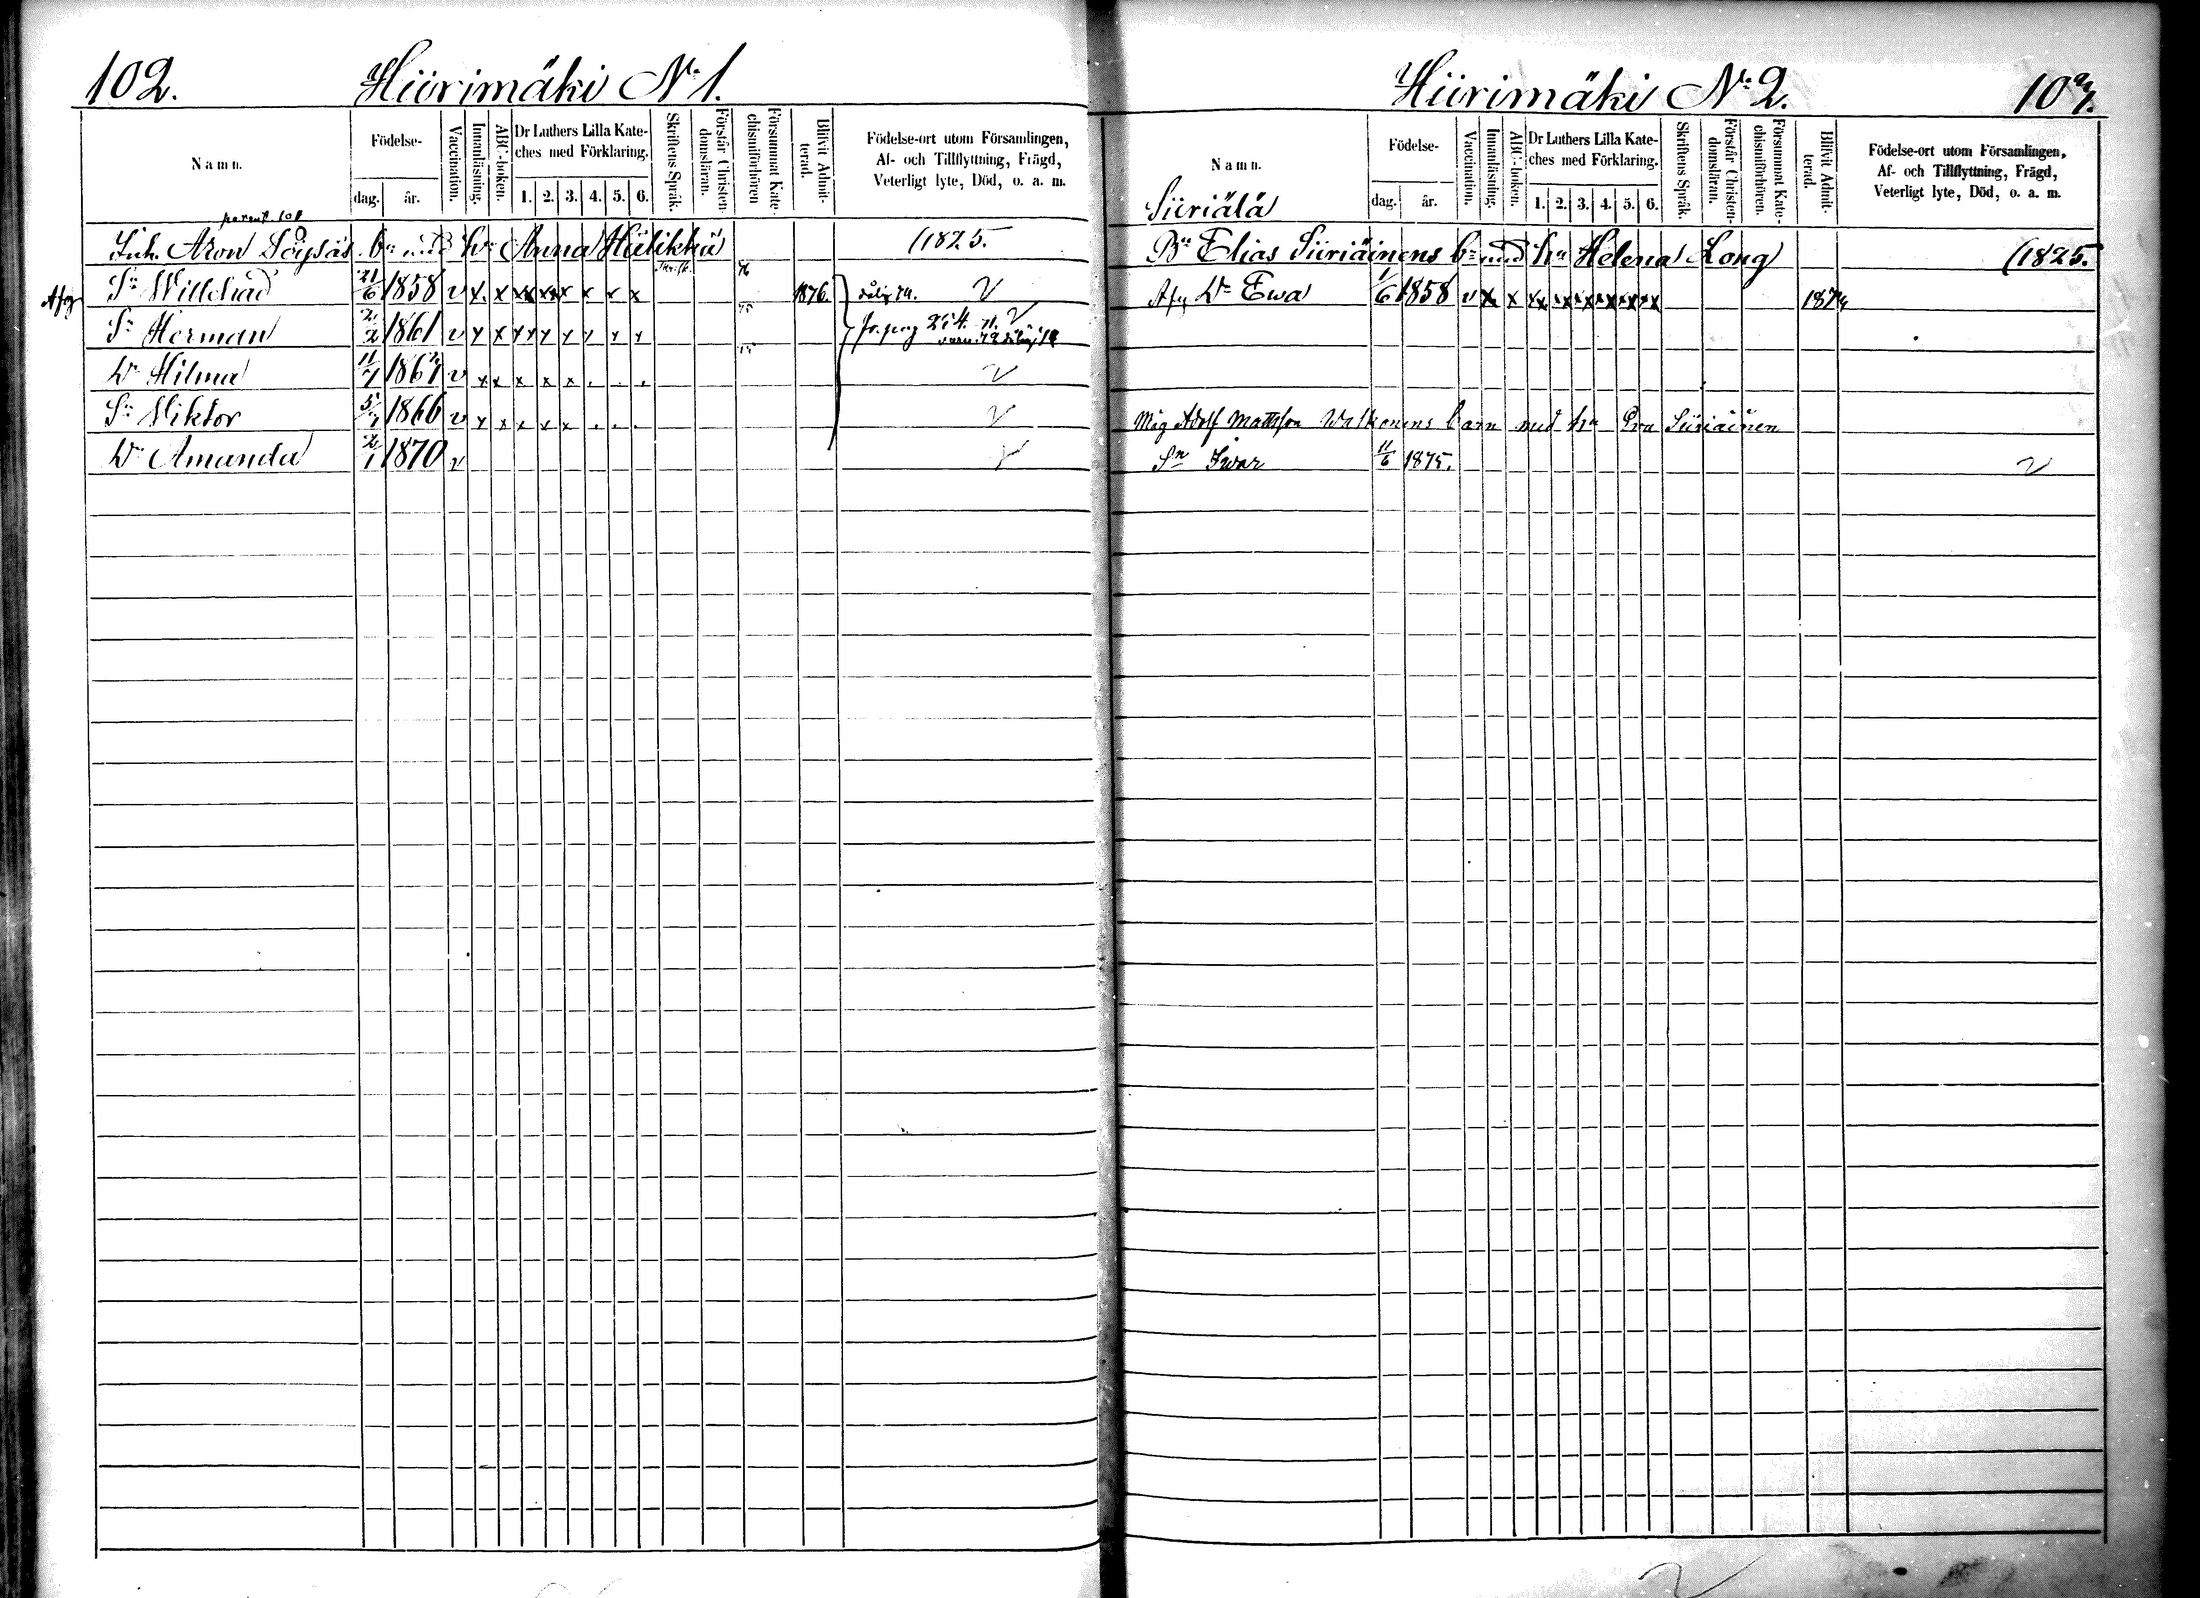 102. Hiirimäki No 1.
Namn.
Födelse-
dag. år.
Vaccination.
Innanläsning.
ABC-boken.
Dr Luthers Lilla Kate-
ches med Förklaring.
1. 2. 3. 4. 5. 6.
Skriftens Språk.
Förstår Christen-
domsläran.
Försummat Kate-
chismiförhören
Blifvit Admit-
terad.
Födelse-ort utom Församlingen,
Af- och Tillflyttning, Frägd,
Veterligt lyte, Död, o. a. m.
Inh. Aron b:n med h: Anna (1825.
Afg Sn Willehad 21/6 1858 v x x x x x x x x 76 1876.
Sn Herman 2/2 1861 v x x x x x x x x 75 fr. pag 254.
Dr Hilma 11/7 v x x x x x
Sn Wiktor 1866 v x x x x x
Dr Amanda 2/1 1870 v
Hiirimäki No 2.
Namn.
Siiriälä
Födelse-
dag. år.
Vaccination.
Innanläsning.
ABC-boken.
Dr Luthers Lilla Kate-
ches med Förklaring.
1. 2. 3. 4. 5. 6.
Skriftens Språk.
Förstår Christen-
domsläran.
Försummat Kate-
chismiförhören.
Blifvit Admit-
terad.
Födelse-ort utom Församlingen,
Af- och Tillflyttning, Frägd,
Veterligt lyte, Död, o. a. m.
Bn Elias Siiriäinens b:n med hu Helena Kong (1825.
Afg Dr Ewa 1/6 1858 v x x x x x x x x
Måg Adolf Mattsson barn med hu Eva Siiriäinen
Sn Iwar 11/6 1875.